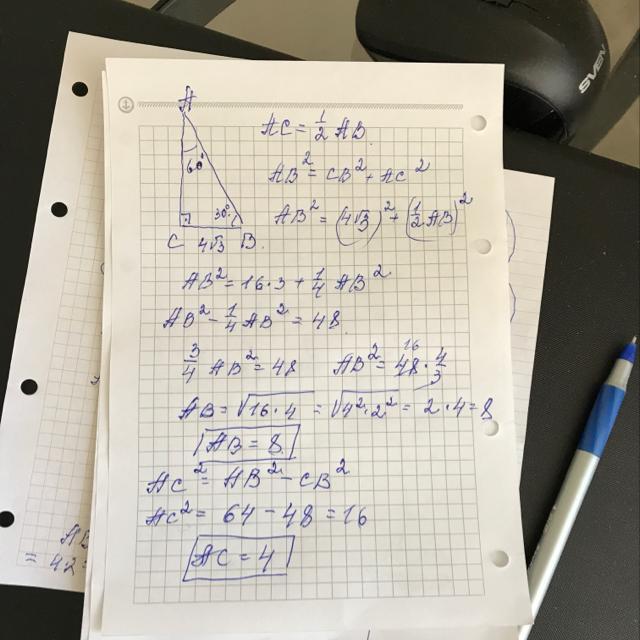 SVEN
A
60°
30°
C 4√3 B
AC = 1/2 AB
AB² = CB² + AC²
AB² = (4√3)² + (1/2 AB)²
AB² = 16·3 + 1/4 AB²
AB² - 1/4 AB² = 48
3/4 AB² = 48 AB² = 48·4/3
16
AB = √16·4 = √4²·2² = 2·4=8
AB = 8
AC² = AB² - CB²
AC² = 64 - 48 = 16
AC = 4
= 42